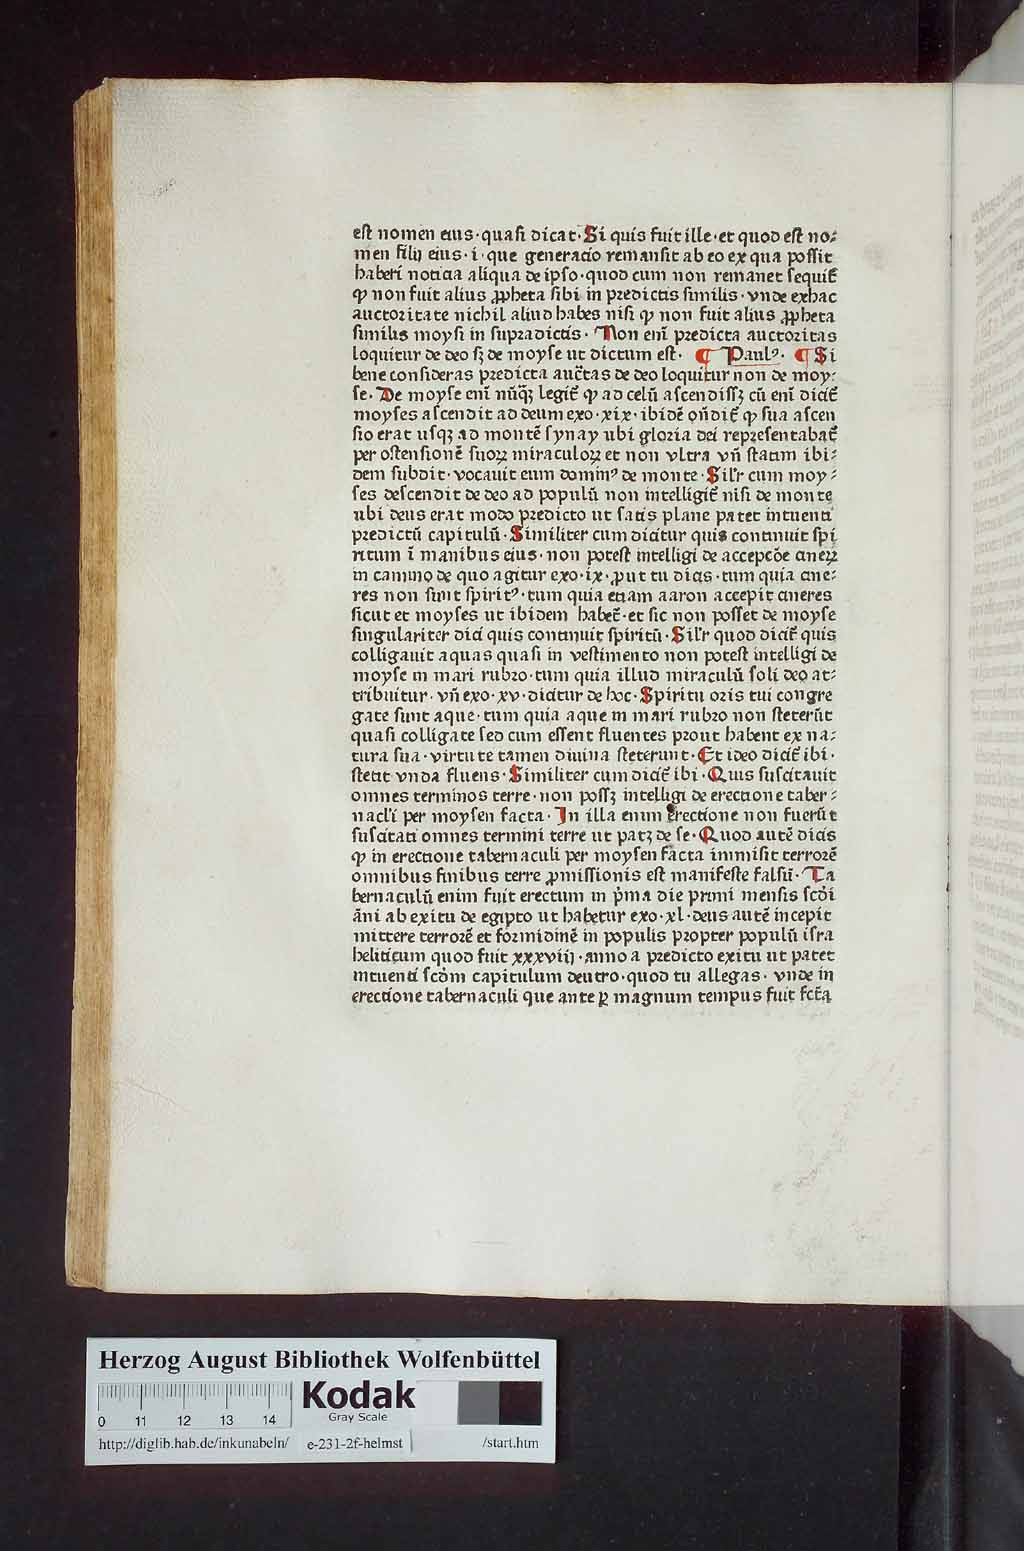 est nomen eius·quasi dicat·Si quis fuit ille·et quod est no⸗
men filij eius·i·que generacio remansit ab eo ex qua possit
haberi noticia aliqua de ipso·quod cum non remanet sequit̄
ꝙ non fuit alius ꝓpheta sibi in predictis similis·vnde ex hac
auctoritate nichil aliud habes nisi ꝙ non fuit alius ꝓpheta
similis moysi in supradictis·Non eni̅ predicta auctoritas
loquitur de deo sꝫ de moyse ut dictum est· ¶ Paulꝰ· ¶ Si
bene consideras predicta auc̅tas de deo loquitur non de moy⸗
se·De moyse eni̅ nu̅qꝫ legit̄ ꝙ ad celu̅ ascendissꝫ cu̅ eni̅ dicit̄
moyses ascendit ad deum exo·xix·ibide̅ on̅dit̄ ꝙ sua ascen
sio erat usqꝫ ad monte̅ synay ubi gloria dei representabat̄
per ostensione̅ suoꝝ miraculoꝝ et non vltra vn̅ statim ibi⸗
dem subdit·vocauit eum dominꝰ de monte·Sil̅r cum moy⸗
ses descendit de deo ad populu̅ non intelligit̄ nisi de monte
ubi deus erat modo predicto ut satis plane patet intuenti
predictu̅ capitulu̅·Similiter cum dicitur quis continuit spi
ritum i̅ manibus eius·non potest intelligi de accepco̅e cineꝝ
in camino de quo agitur exo·ix·ꝓut tu dicis·tum quia cine⸗
res non sunt spiritꝰ·tum quia etiam aaron accepit cineres
sicut et moyses ut ibidem habet̄·et sic non posset de moyse
singulariter dici quis continuit spiritu̅·Sil̅r quod dicit̄ quis
colligauit aquas quasi in vestimento non potest intelligi de
moyse in mari rubro·tum quia illud miraculu̅ soli deo at⸗
tribuitur·vn̅ exo·xv·dicitur de hoc·Spiritu oris tui congre
gate sunt aque·tum quia aque in mari rubro non steteru̅t
quasi colligate sed cum essent fluentes prout habent ex na⸗
tura sua·virtute tamen diuina steterunt·Et ideo dicit̄ ibi·
stetit vnda fluens·Similiter cum dicit̄ ibi·Quis suscitauit
omnes terminos terre·non possꝫ intelligi de erectione taber⸗
nacl̅i per moysen facta·In illa enim erectione non fueru̅t
suscitati omnes termini terre ut patꝫ de se·Quod aute̅ dicis
ꝙ in erectione tabernaculi per moysen facta immisit terrore̅
omnibus finibus terre ꝓmissionis est manifeste falsu̅·Ta
bernaculu̅ enim fuit erectum in p̍ma die primi mensis sco̅i
a̅ni ab exitu de egipto ut habetur exo·xl·deus aute̅ incepit
mittere terrore̅ et formidine̅ in populis propter populu̅ isra
heliticum quod fuit xxxviij·anno a predicto exitu ut patet
intuenti sco̅m capitulum deutro·quod tu allegas·vnde in
erectione tabernaculi que ante ꝑ magnum tempus fuit fc̅ta
Herzog August Bibliothek Wolfenbüttel
0 11 12 13 14
Kodak
Gray Scale
http://diglib.hab.de/inkunabeln/ e-231-2f-helmst /start.htm